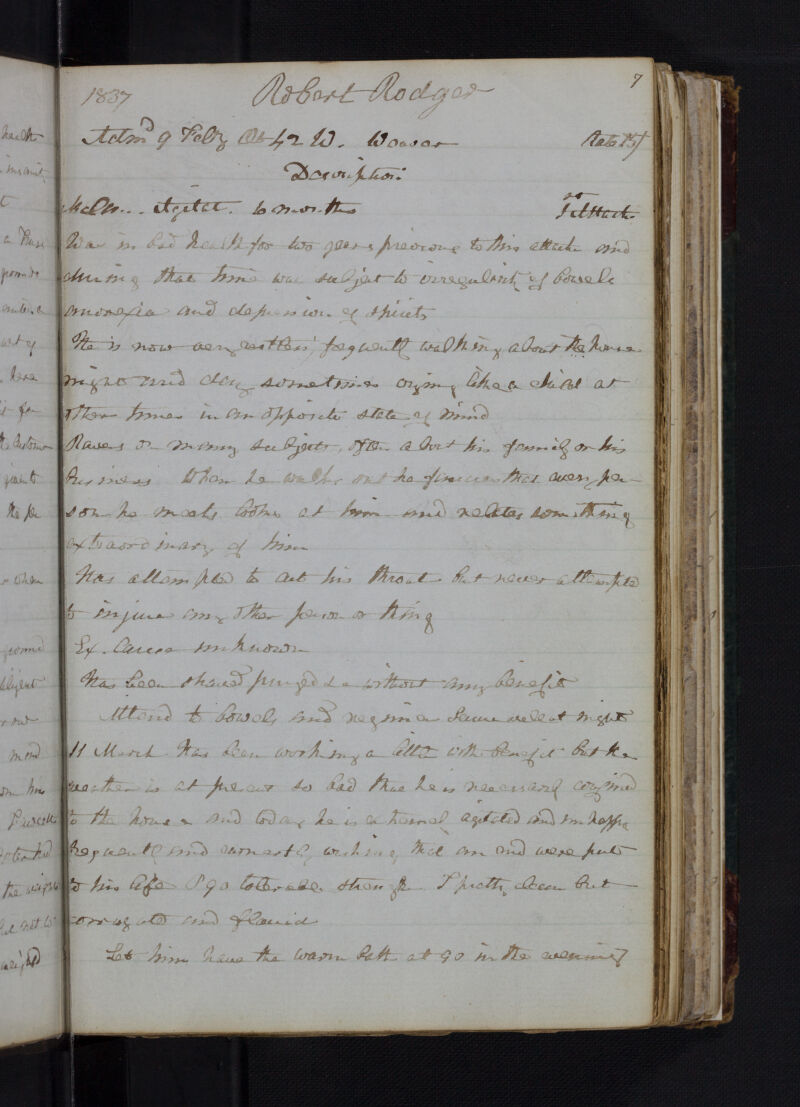 7
1837 Robert Rodger
Adm^d 9 Feby Æt 42 W. Weaver Rate 15/
Description
Melan. Agitat. 6 months 1st Attack
Was in bad health for two years previous to this attack and
during that time was subject to irregularity of bowels
anorexia and depression of spirits
He is now very restless, frequently walking about the house
night and day sometimes crying like a child at
other times in an opposite state of mind
Raves on many subjects, often about his family or his
business When he walks out he fancies that every per
son he meets looks at him and relates something
extraordinary of him
Has attempted to cut his throat but never attempted
to injure any other person or thing
Ex. Cause unknown
Has been shaved purged &c without any benefit
Attend to bowels and regimen Secure well at night
11 March Has been working a little with benefit but the
weather is at present so bad that he is necessarily confined
to the house and today he is extremely agitated and unhappy
frequently and earnestly wishing that an end were put
to his life P 90 tolerable strength T pretty clean but
corrugated and flaccid
Let him have the warm bath at 90 in the evening